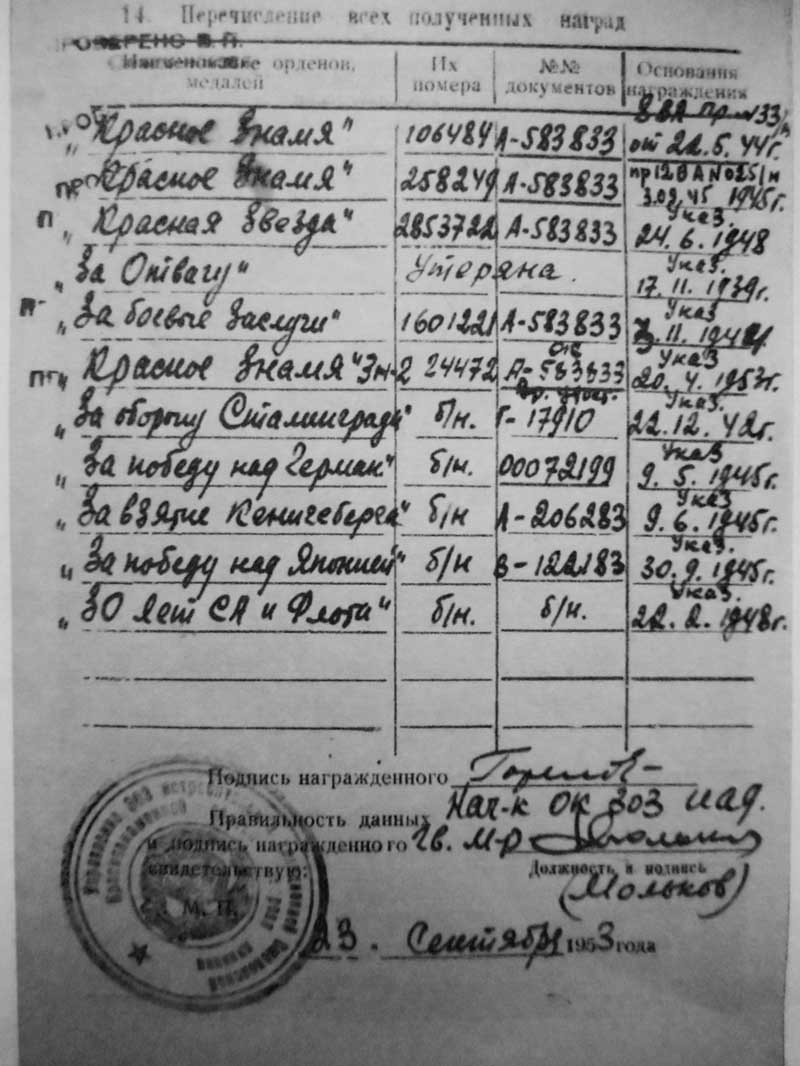 14. Перечисление всех полученных наград
ПРОВЕРЕНО В.П.
Наименование орденов, медалей
Их номера
№№ документов
Основания награждения
ВВА пр. №33/н
"Красное Знамя" 106484 А-583833 от 22.5.44г.
"Красное Знамя" 258249 А-583833 3.02.45 1945г.
п "Красная Звезда" 2853722 А-583833 Указ. 24.6.1948
"За Отвагу" Утеряна. Указ. 17.11.1939г.
п "За боевые заслуги" 1601221 А-583833 Указ
"Красное Знамя" Зн-2 24472 А-583833 Указ 20.4.1953г.
"За оборону Сталинграда" б/н. Г-17910 Указ. 22.12.42г.
"За победу над Герман" б/н. 00072199 Указ 9.5.1945г.
"За взятие Кенигсберга" б/н А-206283 Указ 9.6.1945г.
"За победу над Японией" б/н В-122183 Указ. 30.9.1945г.
"30 лет СА и Флота" б/н. б/н. Указ. 22.2.1948г.
Подпись награжденного
Правильность данных Нач-к ОК 303 иад.
и подпись награжденного Гв. М-р
свидетельствую: Должность и подпись
(Мольков)
М. П.
23. Сентября 1953 года